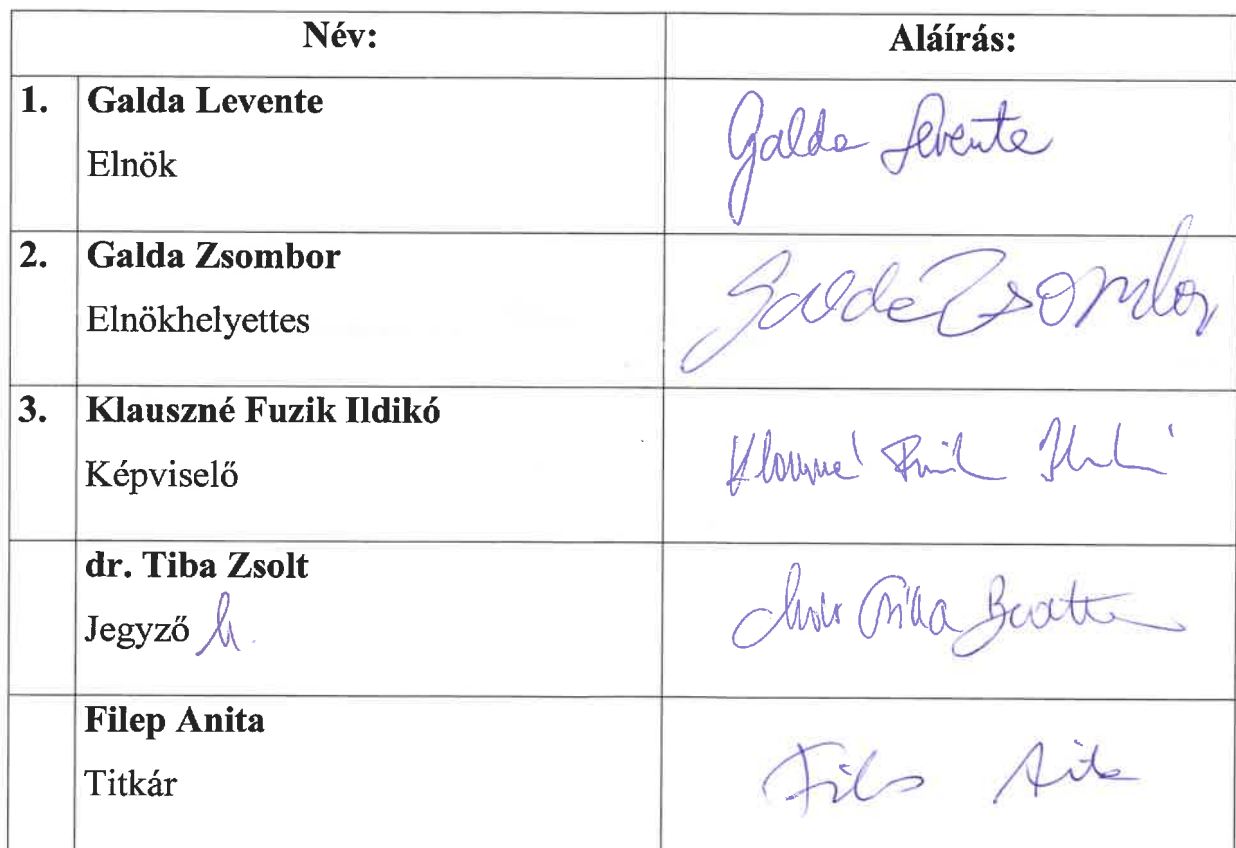 Név: Aláírás:
1. Galda Levente
Elnök
Galda Levente
2. Galda Zsombor
Elnökhelyettes
Galda Zsombor
3. Klauszné Fuzik Ildikó
Képviselő
Klauszné Fuzik Ildikó
dr. Tiba Zsolt
Jegyző h.
Csilla Beatt
Filep Anita
Titkár
Filep Anita